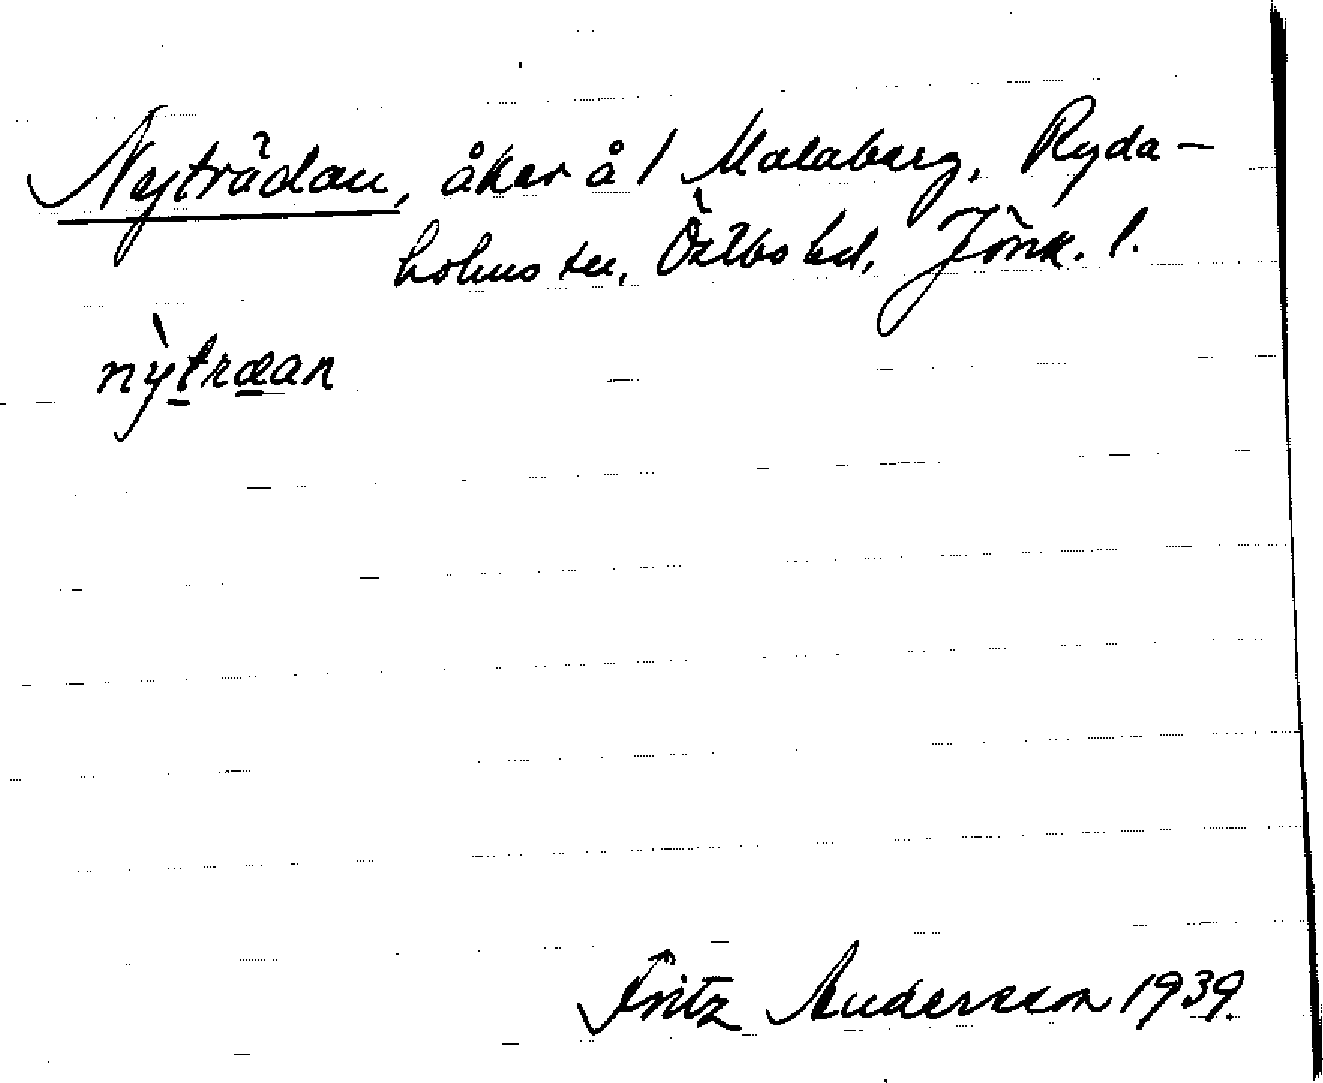 Nyträdan, åker å / Malaberg, Ryda-
holms sn, Östbo hd, Jönk. l.
nỳtræan
Fritz Andersson 1939.